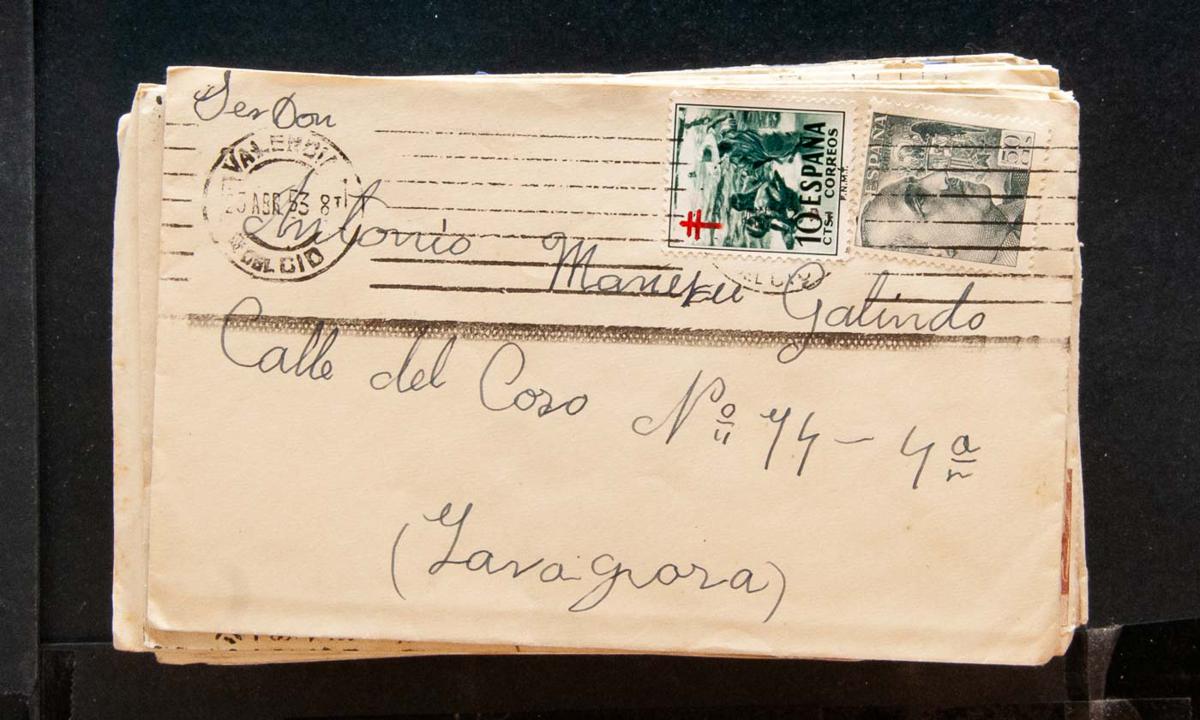 Sr Don
VALENCIA
23 ABR 53 8T
DEL CID
10 CTS. ESPAÑA CORREOS
F.N.M.T.
ESPAÑA 50 CTS
Antonio
Galindo
Calle del Coso Nº 74 - 4ª
(Zaragoza)